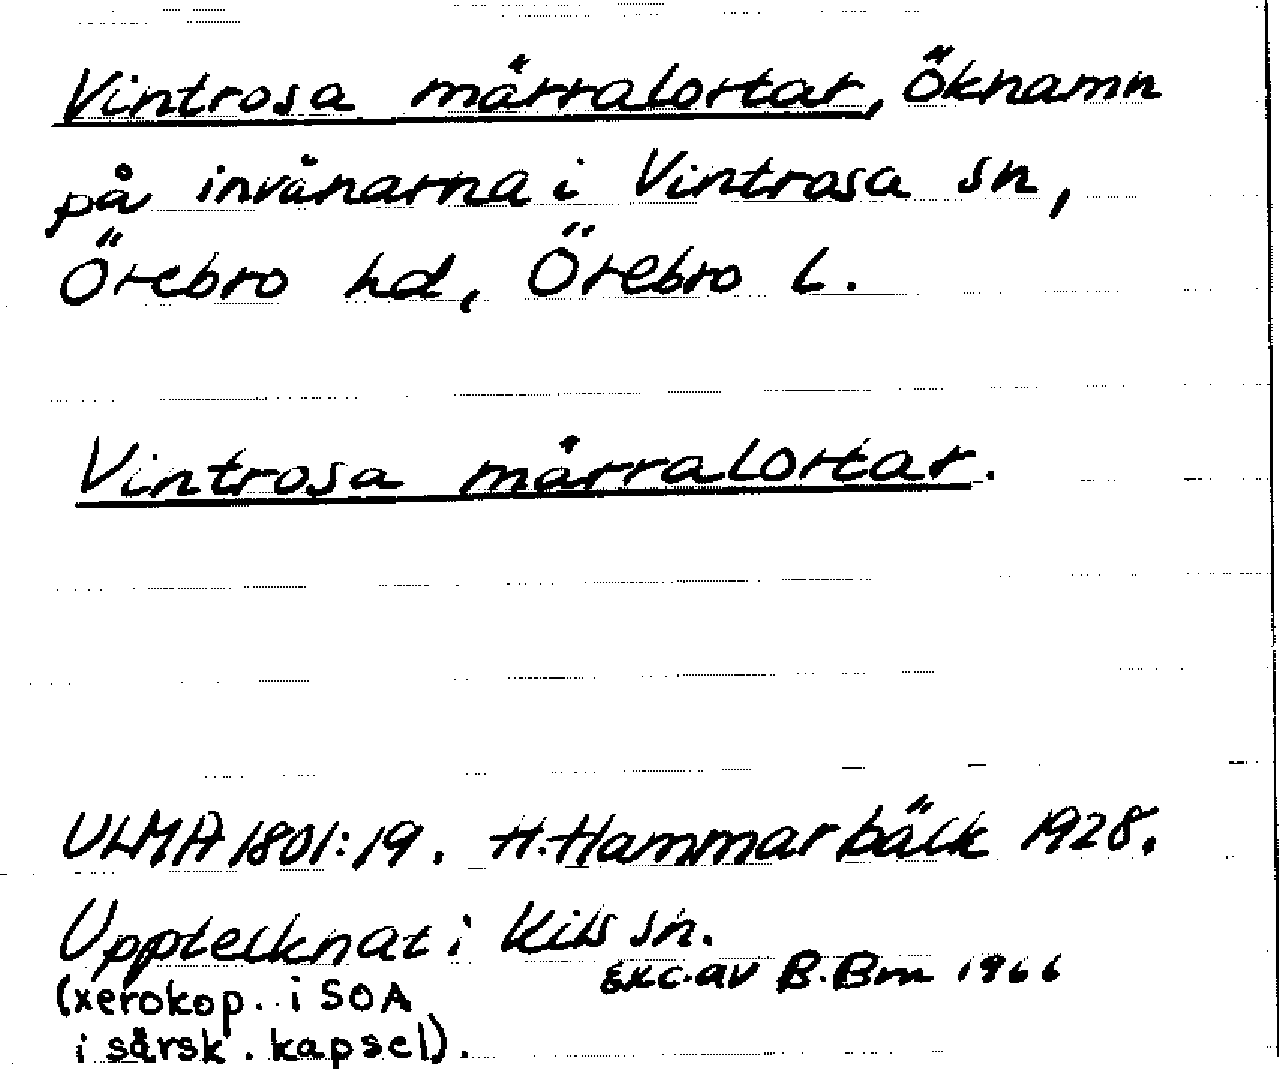 Vintrosa märralortar, öknamn
på invånarna i Vintrosa sn,
Örebro hd, Örebro l.
Vintrosa märralortar.
ULMA 1801:19. H. Hammarbäck 1928.
Upptecknat i Kils sn.
Exc. av B. Bm 1966
(xerokop. i SOA
i särsk. kapsel).